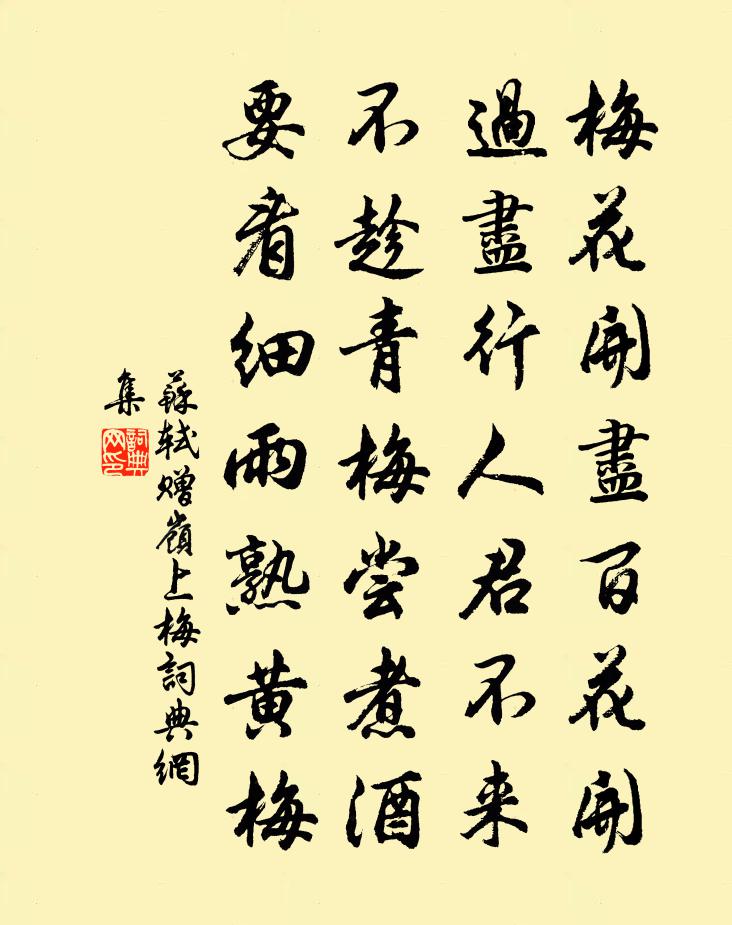 梅花開盡百花開
過盡行人君不来
不趁青梅尝煮酒
要看细雨熟黄梅
蘇軾赠嶺上梅詞典網
集
詞典网印